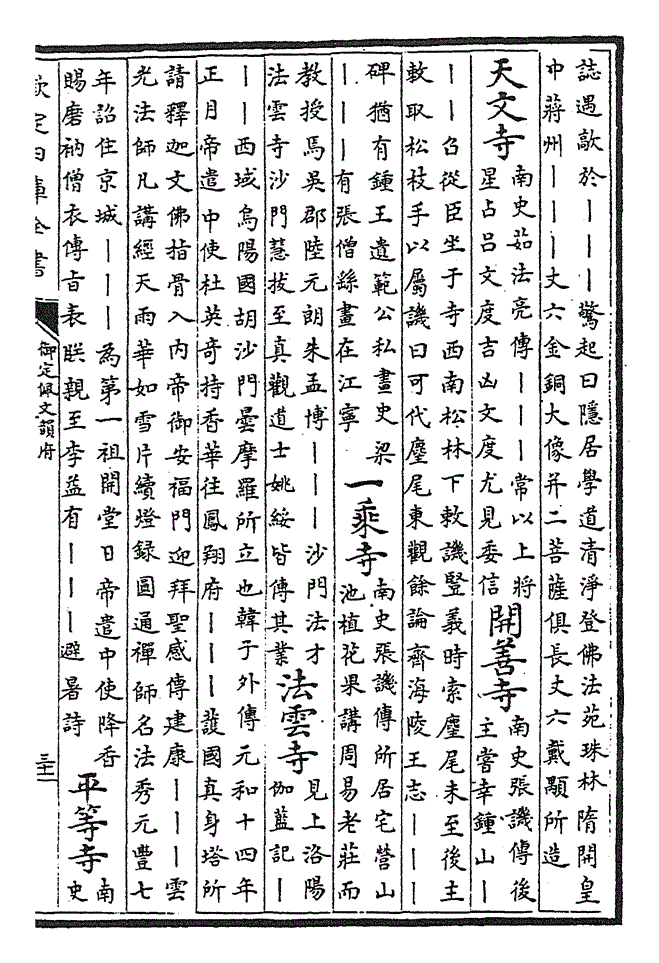 誌遇歊於｜｜｜驚起曰隱居學道清淨登佛法苑珠林隋開皇
中蔣州｜｜｜丈六金銅大像并二菩薩俱長丈六戴顒所造
天文寺
南史茹法亮傳｜｜｜常以上將
星占吕文度吉凶文度尤見委信
開善寺
南史張譏傳後
主嘗幸鍾山｜
｜｜召從臣坐于寺西南松林下敕譏豎義時索麈尾未至後主
敕取松枝手以屬譏曰可代麈尾東觀餘論齊海陵王志｜｜｜
碑猶有鍾王遺範公私畫史梁
｜｜｜有張僧繇畫在江寧
一乘寺
南史張譏傳所居宅營山
池植花果講周易老莊而
教授焉吳郡陸元朗朱孟博｜｜｜沙門法才
法雲寺沙門慧拔至真觀道士姚綏皆傳其業
法雲寺
見上洛陽
伽藍記｜
｜｜西域烏陽國胡沙門曇摩羅所立也韓子外傳元和十四年
正月帝遣中使杜英奇持香華往鳳翔府｜｜｜護國真身塔所
請釋迦文佛指骨入内帝御安福門迎拜聖感傳建康｜｜｜雲
光法師凡講經天雨華如雪片續燈録圓通禪師名法秀元豐七
年詔住京城｜｜｜為第一祖開堂日帝遣中使降香
賜磨衲僧衣傳旨表朕親至李益有｜｜｜避暑詩
平等寺
南
史
欽定四庫全書
御定佩文韻府
三十二